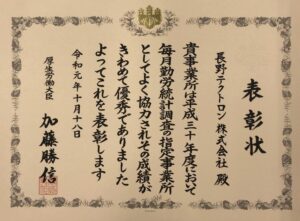 表彰状
長野テクトロン株式会社 殿
貴事業所は平成三十年度において
毎月勤労統計調査の指定事業所
としてよく協力されその成績が
きわめて優秀でありました
よってこれを表彰します
令和元年十月十八日
厚生労働大臣 加藤勝信